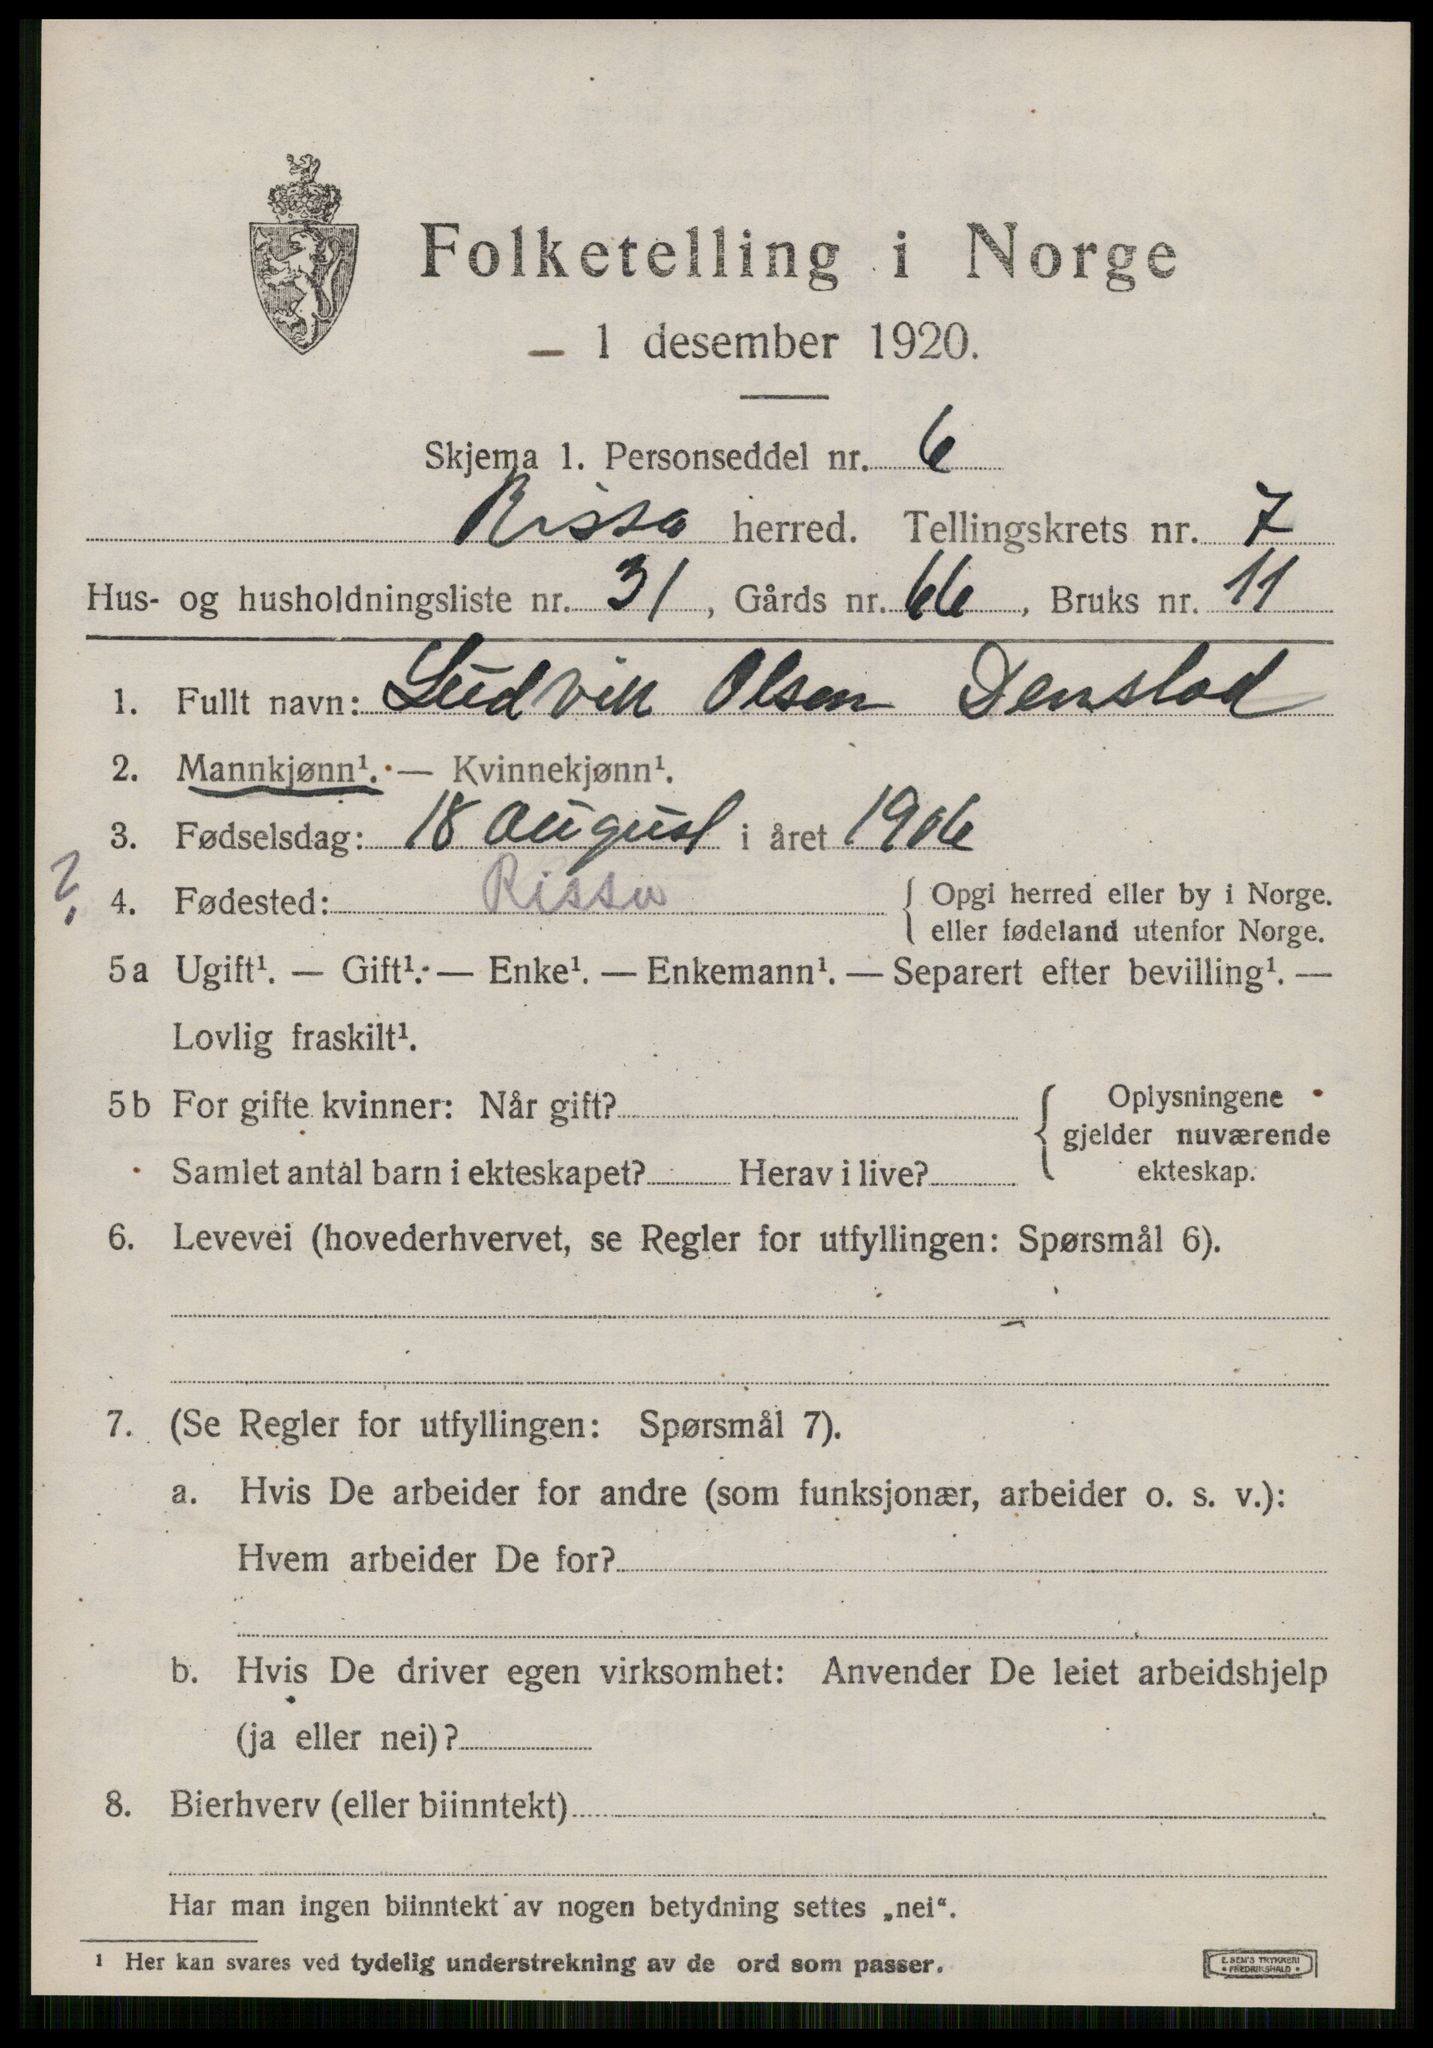 Folketelling i Norge
1 desember 1920.
Skjema 1. Personseddel nr. 6
Rissa herred. Tellingskrets nr. 7
Hus- og husholdningsliste nr. 31, Gårds nr. 66, Bruks nr. 11
1. Fullt navn: Ludvik Olsen Denstad
2. Mannkjønn¹. — Kvinnekjønn¹.
3. Fødselsdag: 18 august i året 1906
? 4. Fødested: Rissa { Opgi herred eller by i Norge.
eller fødeland utenfor Norge.
5a Ugift¹. — Gift¹. — Enke¹. — Enkemann¹. — Separert efter bevilling¹. —
Lovlig fraskilt¹.
5b For gifte kvinner: Når gift? { Oplysningene
gjelder nuværende
Samlet antal barn i ekteskapet? Herav i live? ekteskap.
6. Levevei (hovederhvervet, se Regler for utfyllingen: Spørsmål 6).
7. (Se Regler for utfyllingen: Spørsmål 7).
a. Hvis De arbeider for andre (som funksjonær, arbeider o. s. v.):
Hvem arbeider De for?
b. Hvis De driver egen virksomhet: Anvender De leiet arbeidshjelp
(ja eller nei)?
8. Bierhverv (eller biinntekt)
Har man ingen biinntekt av nogen betydning settes „nei“.
¹ Her kan svares ved tydelig understrekning av de ord som passer.
E. SEM'S TRYKKERI
• FREDRIKSHALD •